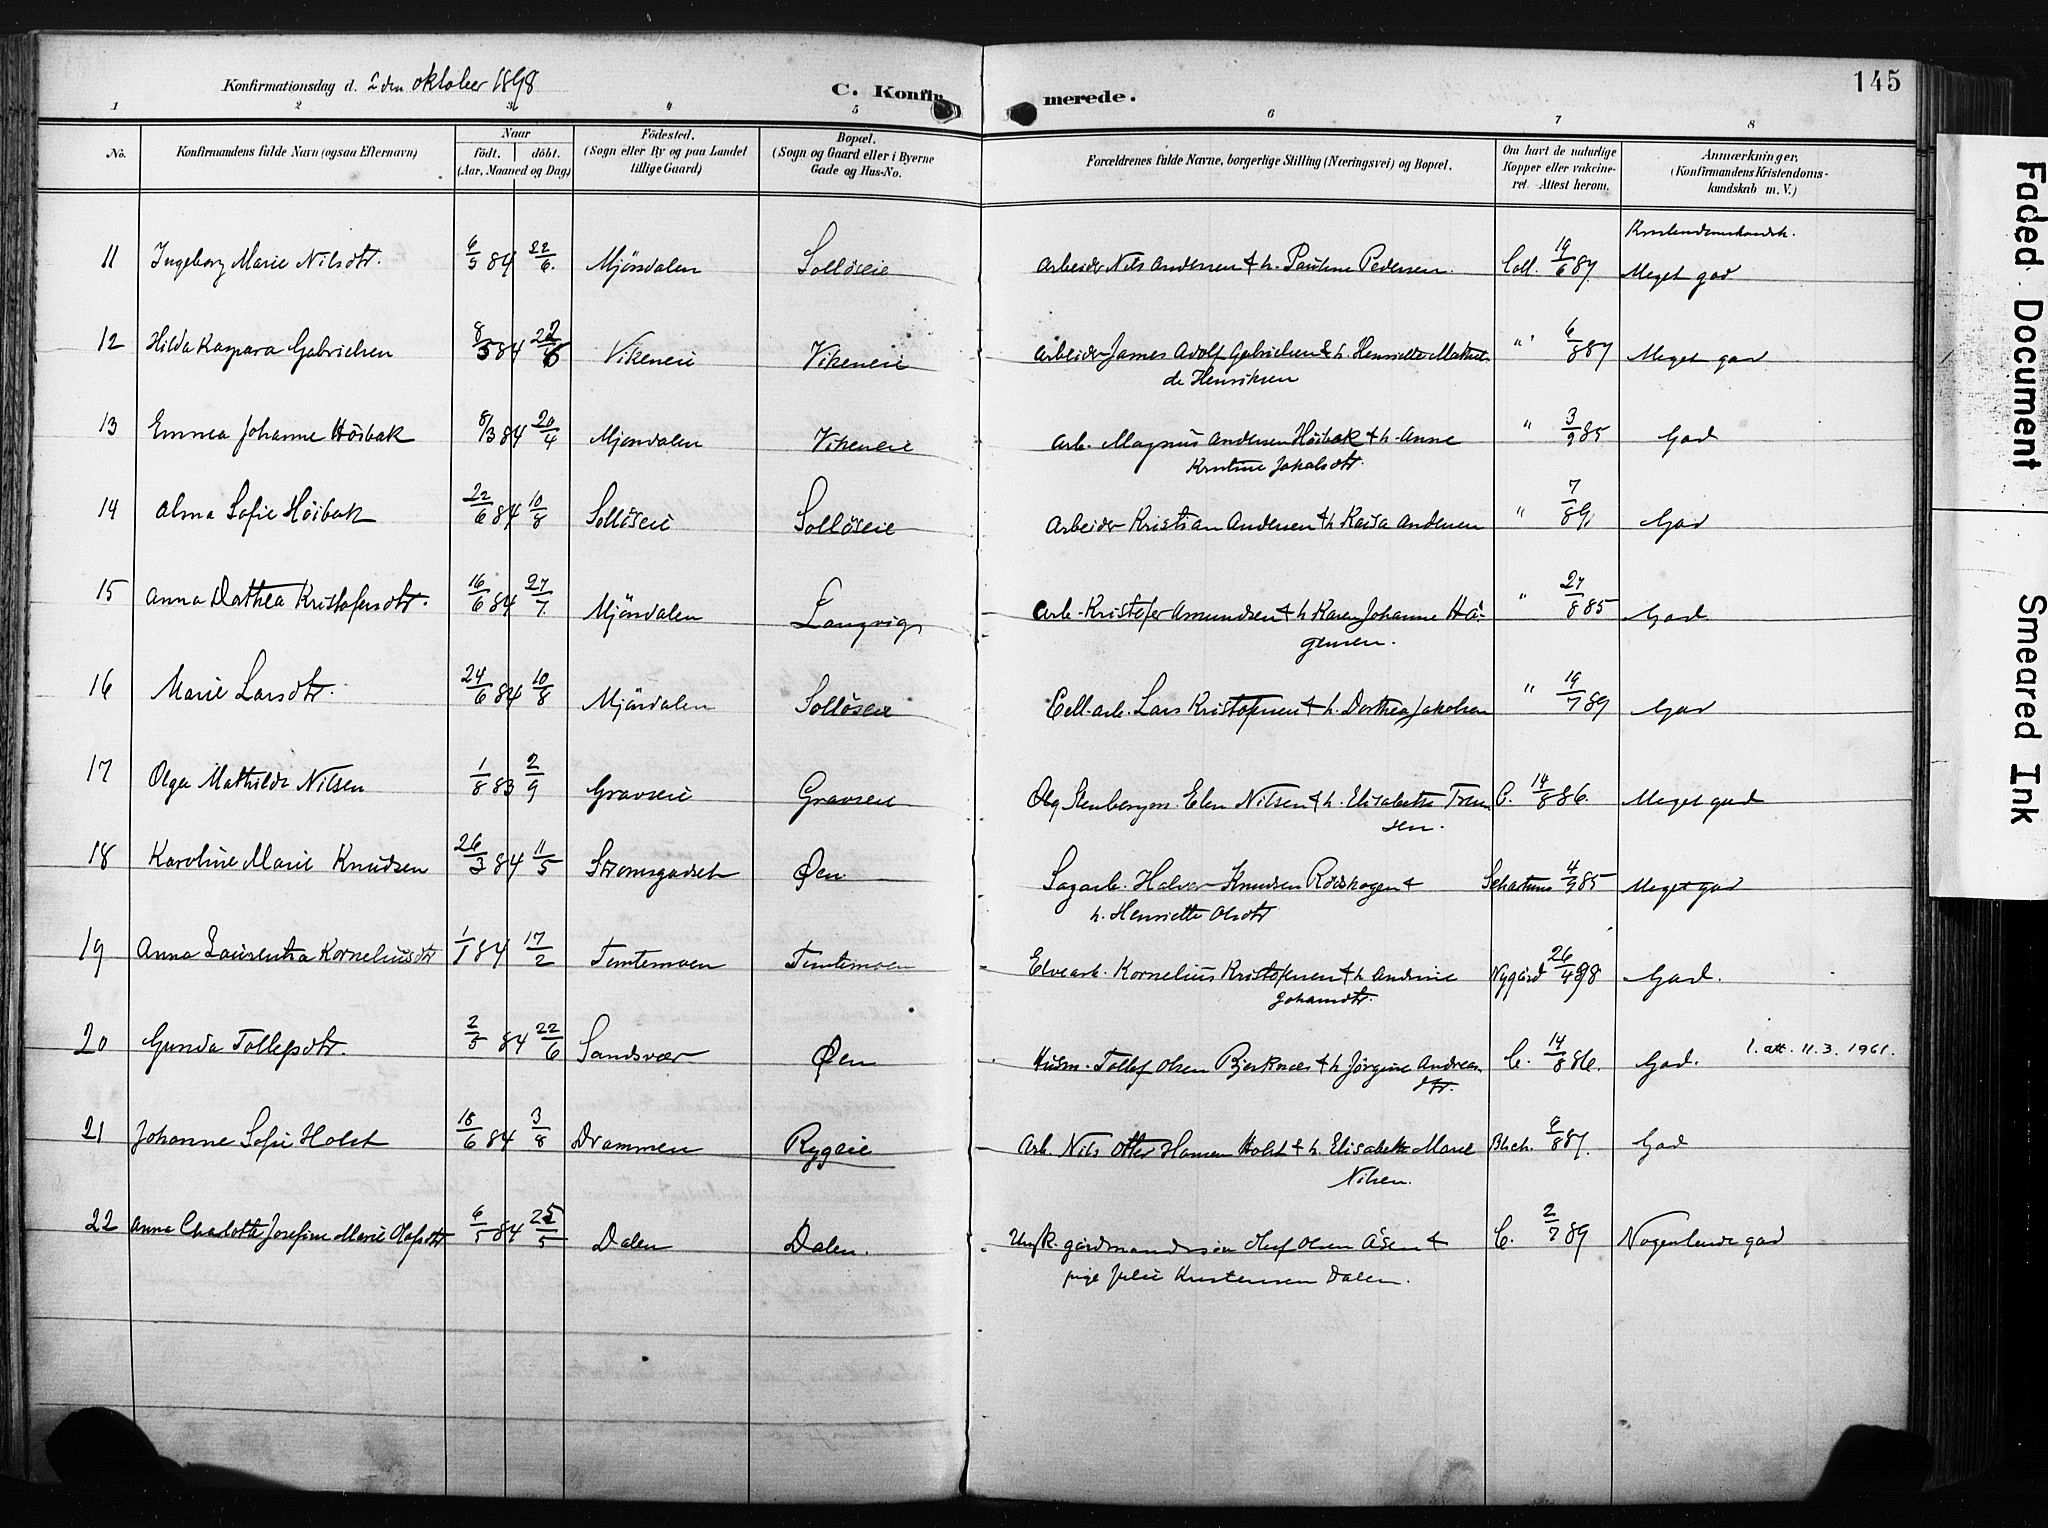 Konfirmationsdag d. 2den oktober 1898
C. Konfirmerede.
145
1 2 3 " 5 6 7 8
No.
Konfirmandens fulde Navn (ogsaa Efternavn)
Naar
födt. döbt.
(Aar, Maaned og Dag)
Födested.
(Sogn eller By og paa Landet tillige Gaard)
Bopæl.
(Sogn og Gaard eller i Byerne Gade og Hus-No.
Forældrenes fulde Navne, borgerlige Stilling (Næringsvei) og Bopæl.
Om havt de naturlige Kopper eller vakcineret. Attest herom.
Anmærkninger,
(Konfirmandens Kristendomskundskab m. V.)
Kristendomskundsk.
11 Ingeborg Marie Nilsdtr. 6/5 84 22/6. Mjöndalen Sollöseie Arbeider Nils Andersen & h. Pauline Pedersen. Coll. 19/6 87. Meget god
12 Hilda Kaspara Gabrielsen 8/5 84 22/6 Vikeneie Vikeneie Arbeider James Adolf Gabrielsen & h. Henriette Mathilde Henriksen " 6/8 87 Meget god
13 Emma Johanne Höibak 8/3 84 20/4 Mjöndalen Vikeneie Arb. Magnus Andersen Höibak & h. Anne Kristine Jakobsdtr. " 3/9 85 God
14 Alma Sofie Höibak 22/6 84 10/8 Sollöseie Sollöseie Arbeider Kristian Andersen & h. Kaisa Andersen " 7/8 91 God
15 Anna Dorthea Kristofersdtr. 16/6 84 27/7 Mjöndalen Langvig Arb. Kristofer Amundsen & h. Karen Johanne Hågensen. " 27/8 85 God
16 Marie Larsdtr. 24/6 84 10/8 Mjöndalen Sollöseie Cell. arb. Lars Kristofersen & h. Dorthea Jakobsen " 19/7 89 God
17 Olga Mathilde Nilsen 1/8 83 2/9 Gravseie Gravseie Nilsen & h. Elisabeth C. 14/8 86. Meget god
18 Karoline Marie Knudsen 26/3 84 11/5 Strømsgodset Øen Sagarb. Halvor Knudsen Rödskogen & h. Henriette Olsdtr 4/9 85 Meget god
19 Anna Laurentza Korneliusdtr 1/1 84 17/2 Temtemoen Temtemoen Elvearb. Kornelius Kristofersen & h. Andrine Johansdtr. Nygård 26/4 98 God.
20 Gunda Tollefsdtr. 2/5 84 22/6 Sandsvær Øen Husm. Tollef Olsen Bjerknæs & h. Jørgine Andreasdtr. C. 14/8 86. God. l. att. 11.3.1961.
21 Johanne Sofie Holst 18/6 84 3/8 Drammen Rygeie Arb. Nils Otter Hansen Holst & h. Elisabeth Marie Nilsen. 9/8 87. God
22 Anna Charlotte Josefine Marie Olafsdtr 6/5 84 25/5 Dalen Dalen. Ungk. gårdmandssön Oluf Olsen Åsen & pige Julie Kristensen Dalen. C. 2/7 89 Nogenlunde god
Faded Document
Smeared Ink